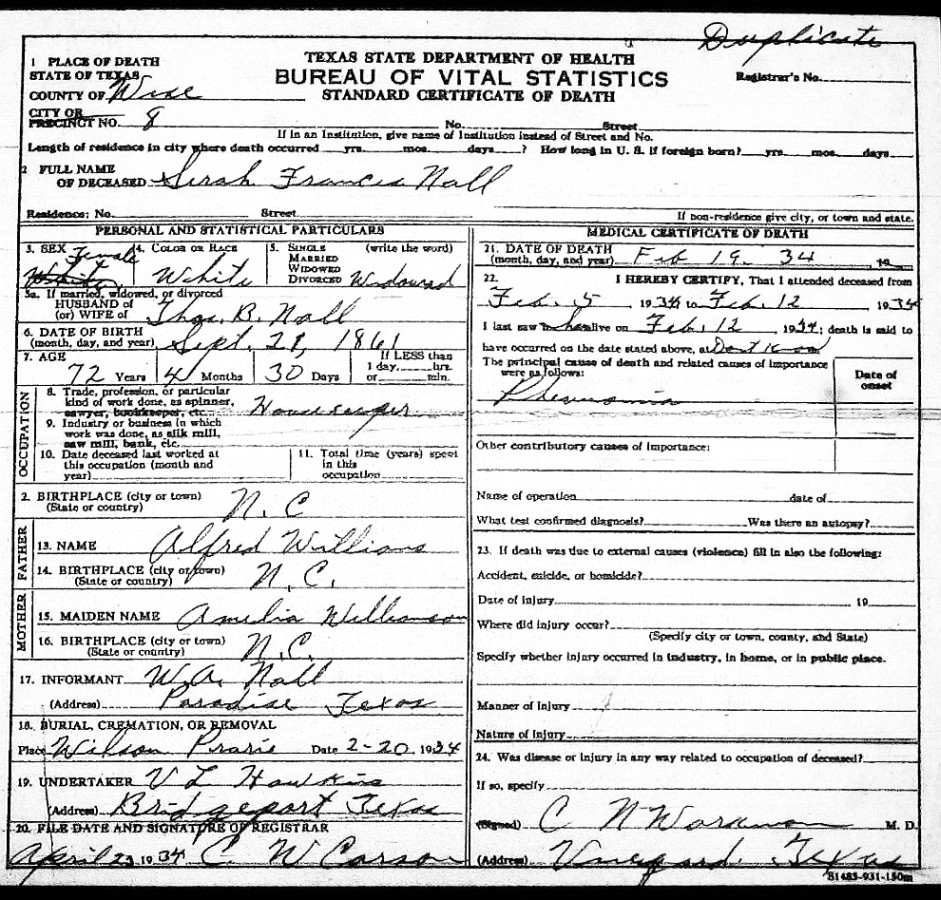 Duplicate
1 PLACE OF DEATH
STATE OF TEXAS
COUNTY OF Wise
CITY OR
PRECINCT NO. 8
TEXAS STATE DEPARTMENT OF HEALTH
BUREAU OF VITAL STATISTICS
STANDARD CERTIFICATE OF DEATH
Registrar's No.
No. Street
If in an Institution, give name of Institution instead of Street and No.
Length of residence in city where death occurred yrs. mos. days ? How long in U. S. if foreign born? yrs. mos. days
2 FULL NAME
OF DECEASED Serah Francis Nall
Residence: No. Street
If non-residence give city, or town and state.
PERSONAL AND STATISTICAL PARTICULARS
3. SEX Female
White
4. COLOR OR RACE
White
5. SINGLE (write the word)
MARRIED
WIDOWED
DIVORCED Widowed
5a. If married, widowed, or divorced
HUSBAND of
(or) WIFE of Thos. B. Nall
6. DATE OF BIRTH
(month, day, and year) Sept. 21, 1861
7. AGE If LESS than
72 Years 4 Months 30 Days 1 day, hrs.
or min.
OCCUPATION
8. Trade, profession, or particular
kind of work done, as spinner,
sawyer, bookkeeper, etc. Housekeeper
9. Industry or business in which
work was done, as silk mill,
saw mill, bank, etc.
10. Date deceased last worked at
this occupation (month and
year)
11. Total time (years) spent
in this
occupation
2. BIRTHPLACE (city or town)
(State or country) N. C
FATHER
13. NAME Alfred Willians
14. BIRTHPLACE (city or town)
(State or country) N. C.
MOTHER
15. MAIDEN NAME Amelia Williamson
16. BIRTHPLACE (city or town)
(State or country) N.C.
17. INFORMANT W. A. Nall
(Address) Paradise Texas
18. BURIAL, CREMATION, OR REMOVAL
Place Wilson Prarie Date 2-20 1934
19. UNDERTAKER V L Hawkins
(Address) Bridgeport Texas
20. FILE DATE AND SIGNATURE OF REGISTRAR
April 23 1934 C. W Carson
MEDICAL CERTIFICATE OF DEATH
21. DATE OF DEATH
(month, day, and year) Feb 19. 34 19
22. I HEREBY CERTIFY, That I attended deceased from
Feb. 5 1934 to Feb. 12 , 1934
I last saw her alive on Feb. 12 1934; death is said to
have occurred on the date stated above, at Dont Know
The principal cause of death and related causes of importance
were as follows:
Date of
onset
Pheumonia
Other contributory causes of importance:
Name of operation date of
What test confirmed diagnosis? Was there an autopsy?
23. If death was due to external causes (violence) fill in also the following:
Accident, suicide, or homicide?
Date of injury 19
Where did injury occur?
(Specify city or town, county, and State)
Specify whether injury occurred in industry, in home, or in public place.
Manner of injury
Nature of injury
24. Was disease or injury in any way related to occupation of deceased?
If so, specify
(Signed) C N Workman M. D.
(Address) Texas
S1485-931-150m